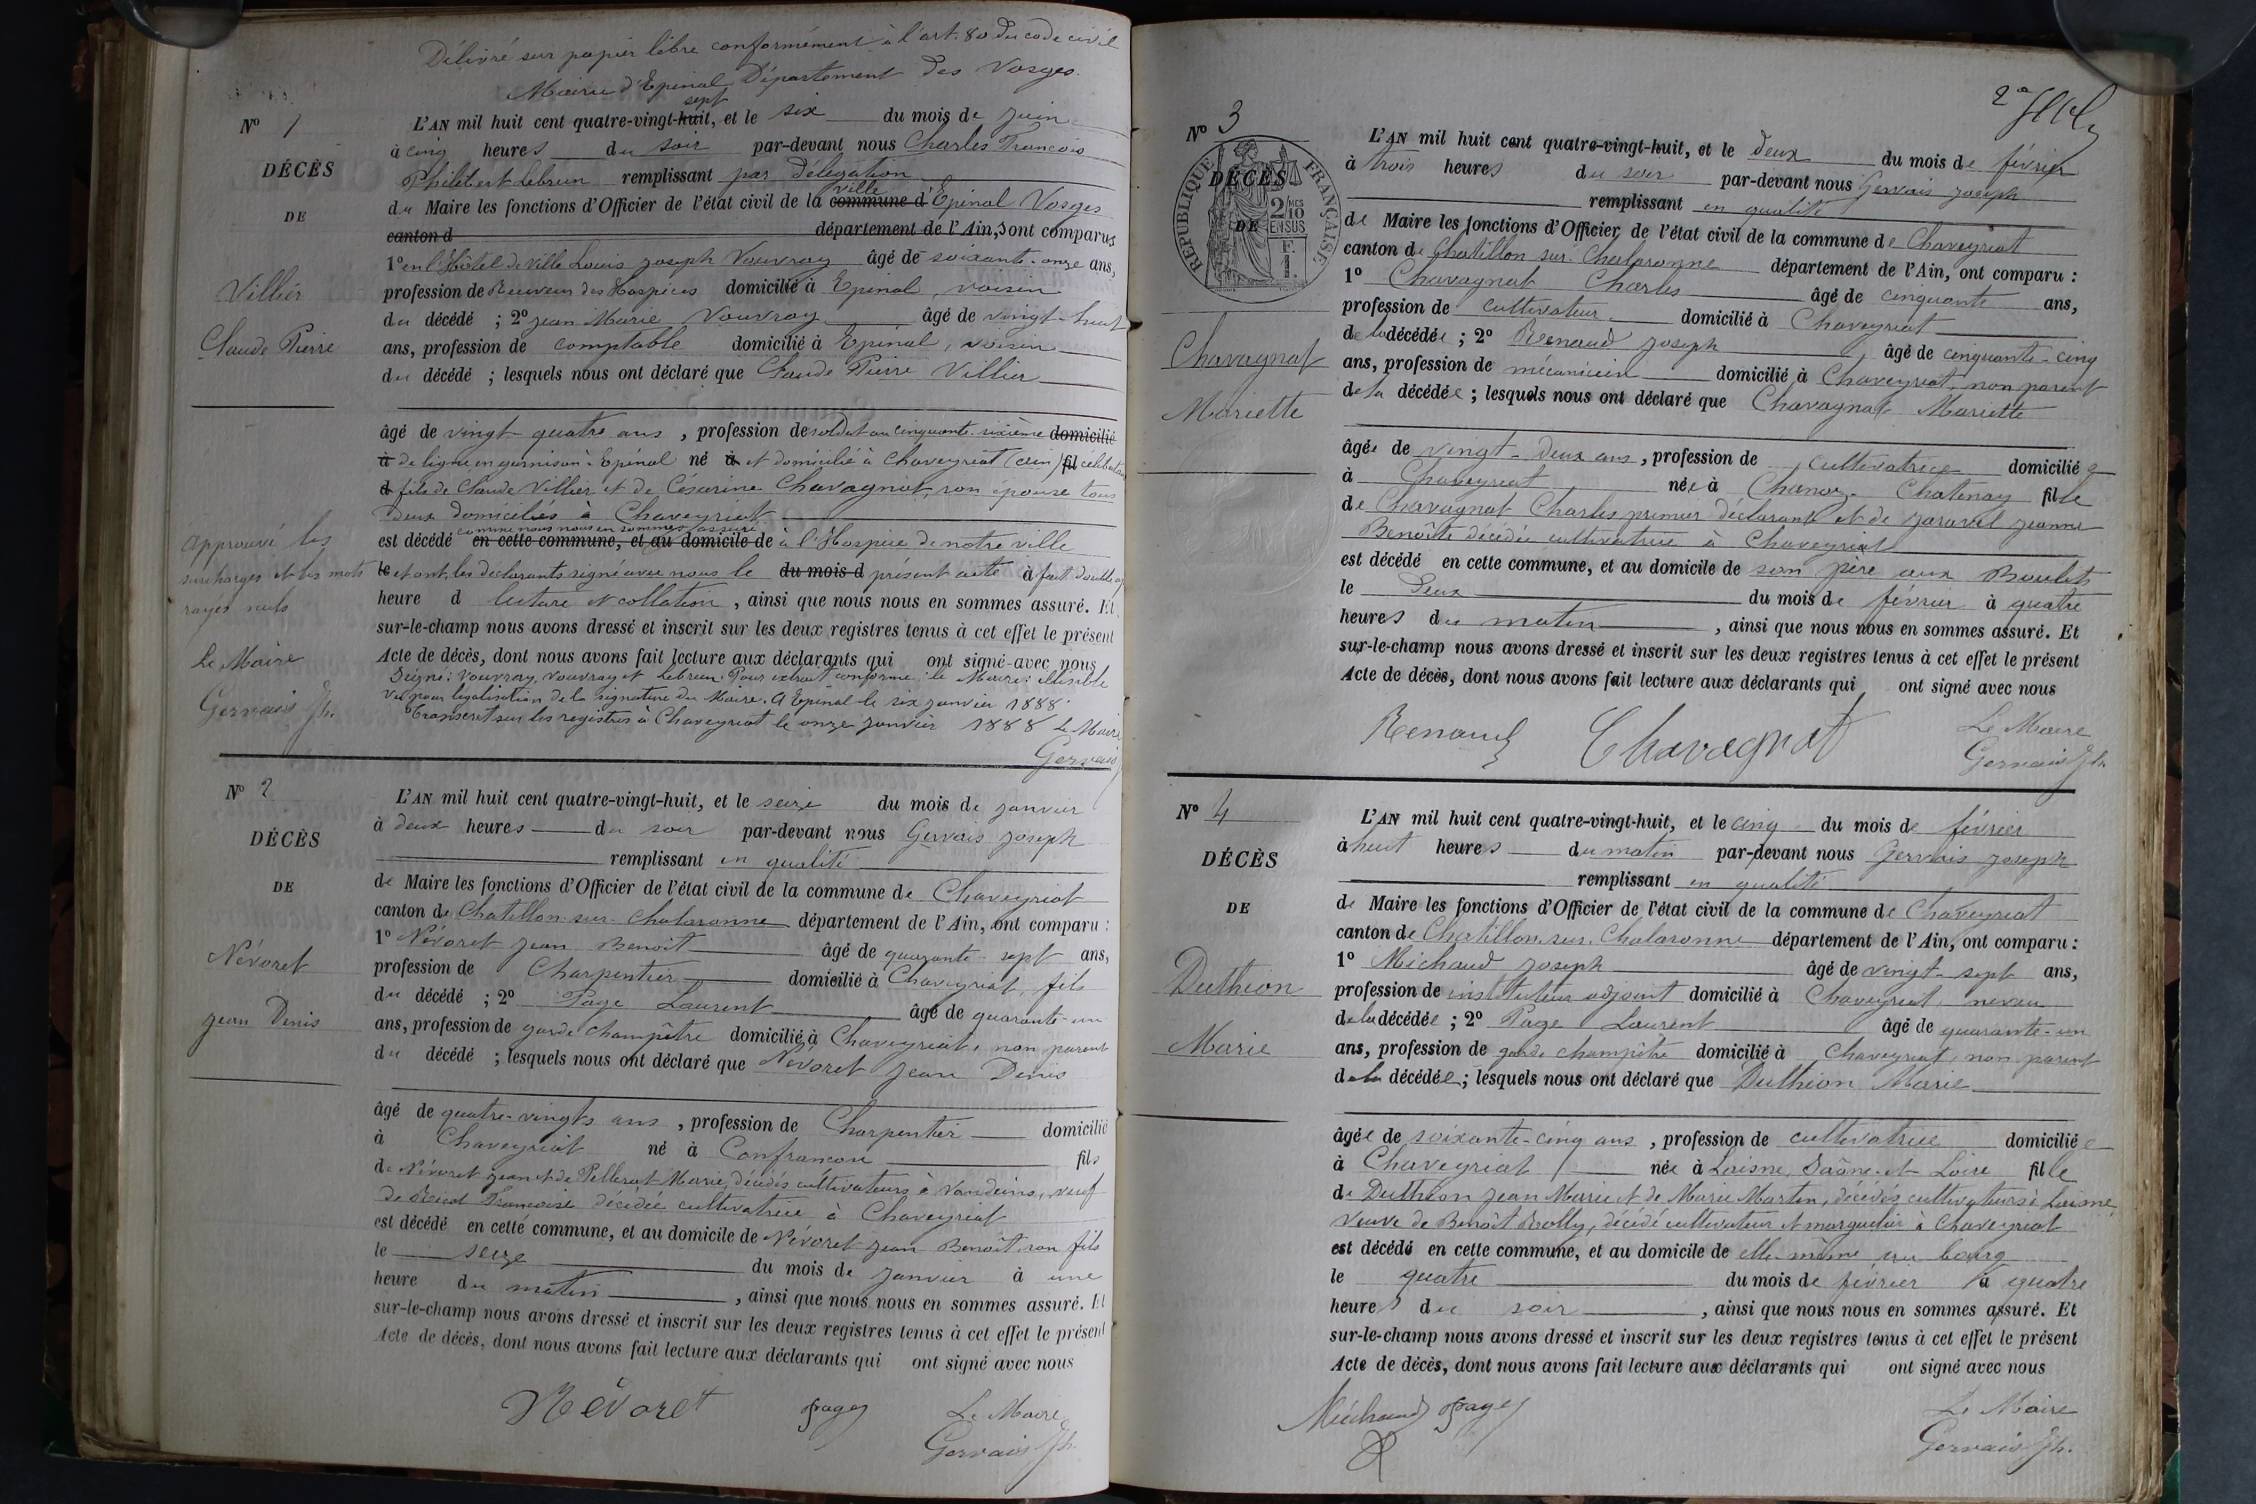 Délivré sur papier libre conformément à l'art. 80 du code civil
Mairie d'Epinal Département des Vosges.
N° 1
DÉCÈS
DE
Villier
Claude Pierre
approuvé les
surcharges et les mots
rayés nuls
Le Maire
Gervais Jh.
sept
L'AN mil huit cent quatre-vingt-huit, et le six du mois de juin
à cinq heures du soir par-devant nous Charles François
Philibert Lebrun remplissant par délégation
ville
du Maire les fonctions d'Officier de l'état civil de la commune d'Epinal Vosges
canton d département de l'Ain, sont comparus
1° en l'Hôtel de Ville Louis Joseph Vouvray âgé de soixante-onze ans,
profession de Receveur des Hospices domicilié à Epinal, voisin
du décédé ; 2° Jean Marie Vouvray âgé de vingt-huit
ans, profession de comptable domicilié à Epinal, voisin
du décédé ; lesquels nous ont déclaré que Claude Pierre Villier
âgé de vingt quatre ans, profession de soldat au cinquante-sixième domicilié
à de ligne en garnison à Epinal né à et domicilié à Chaveyriat (ain) fil célibataire
d fils de Claude Villier et de Césarine Chavagnat, son épouse tous
deux domiciliés à Chaveyriat
comme nous nous en sommes assuré
est décédé en cette commune, et au domicile de à l'Hospice de notre ville
le et ont les déclarants signé avec nous le du mois d présent acte à fait double
heure d lecture et collation, ainsi que nous nous en sommes assuré. Et
sur-le-champ nous avons dressé et inscrit sur les deux registres tenus à cet effet le présent
Acte de décès, dont nous avons fait lecture aux déclarants qui ont signé avec nous
Signé : Vouvray, Vouvray et Lebrun. Pour extrait conforme : le Maire : illisible
Vu pour légalisation de la signature du Maire. A Epinal le six janvier 1888.
Transcrit sur les registres à Chaveyriat le onze janvier 1888 Le Maire
Gervais
N° 2
DÉCÈS
DE
Névoret
Jean Denis
L'AN mil huit cent quatre-vingt-huit, et le seize du mois de janvier
à deux heures du soir par-devant nous Gervais Joseph
remplissant en qualité
de Maire les fonctions d'Officier de l'état civil de la commune de Chaveyriat
canton de Chatillon-sur-Chalaronne département de l'Ain, ont comparu :
1° Névoret Jean Benoît âgé de quarante-sept ans,
profession de Charpentier domicilié à Chaveyriat, fils
du décédé ; 2° Page Laurent âgé de quarante-un
ans, profession de garde champêtre domicilié à Chaveyriat, non parent
du décédé ; lesquels nous ont déclaré que Névoret Jean Denis
âgé de quatre-vingts ans, profession de Charpentier domicilié
à Chaveyriat né à Confrancon fils
de Névoret Jean et de Pellerat Marie, décédés cultivateurs à Vandeins, veuf
de Françoise décédée cultivatrice à Chaveyriat
est décédé en cette commune, et au domicile de Névoret Jean Benoît son fils
le seize du mois de janvier à une
heure du matin, ainsi que nous nous en sommes assuré. Et
sur-le-champ nous avons dressé et inscrit sur les deux registres tenus à cet effet le présent
Acte de décès, dont nous avons fait lecture aux déclarants qui ont signé avec nous
Névoret Page Le Maire
Gervais Jh.
2e
N° 3
RÉPUBLIQUE FRANÇAISE
2/10 EN SUS
F. 1.
DÉCÈS
DE
Chavagnat
Mariette
L'AN mil huit cent quatre-vingt-huit, et le deux du mois de février
à trois heures du soir par-devant nous Gervais Joseph
remplissant en qualité
de Maire les fonctions d'Officier de l'état civil de la commune de Chaveyriat
canton de Chatillon-sur-Chalaronne département de l'Ain, ont comparu :
1° Chavagnat Charles âgé de cinquante ans,
profession de cultivateur domicilié à Chaveyriat
de la décédée ; 2° Renaud Joseph âgé de cinquante-cinq
ans, profession de mécanicien domicilié à Chaveyriat, non parent
de la décédée ; lesquels nous ont déclaré que Chavagnat Mariette
âgée de vingt-deux ans, profession de cultivatrice domiciliée
à Chaveyriat née à Chanoz-Chatenay fille
de Chavagnat Charles premier déclarant et de Jaravel Jeanne
Benoîte décédée cultivatrice à Chaveyriat
est décédé en cette commune, et au domicile de son père aux Boulets
le Deux du mois de février à quatre
heures du matin, ainsi que nous nous en sommes assuré. Et
sur-le-champ nous avons dressé et inscrit sur les deux registres tenus à cet effet le présent
Acte de décès, dont nous avons fait lecture aux déclarants qui ont signé avec nous
Renaud Chavagnat Le Maire
Gervais Jh.
N° 4
DÉCÈS
DE
Duthion
Marie
L'AN mil huit cent quatre-vingt-huit, et le cinq du mois de février
à huit heures du matin par-devant nous Gervais Joseph
remplissant en qualité
de Maire les fonctions d'Officier de l'état civil de la commune de Chaveyriat
canton de Chatillon-sur-Chalaronne département de l'Ain, ont comparu :
1° Michaud Joseph âgé de vingt-sept ans,
profession de instituteur adjoint domicilié à Chaveyriat, neveu
de la décédée ; 2° Page Laurent âgé de quarante-un
ans, profession de garde champêtre domicilié à Chaveyriat, non parent
de la décédée ; lesquels nous ont déclaré que Duthion Marie
âgée de soixante-cinq ans, profession de cultivatrice domiciliée
à Chaveyriat née à Laisne, Saône-et-Loire fille
de Duthion Jean Marie et de Marie Martin, décédés cultivateurs à Laisne,
veuve de Benoît Rolly, décédé cultivateur et marguelier à Chaveyriat
est décédé en cette commune, et au domicile de elle-même au bourg
le quatre du mois de février à quatre
heures du soir, ainsi que nous nous en sommes assuré. Et
sur-le-champ nous avons dressé et inscrit sur les deux registres tenus à cet effet le présent
Acte de décès, dont nous avons fait lecture aux déclarants qui ont signé avec nous
Michaud Page Le Maire
Gervais Jh.